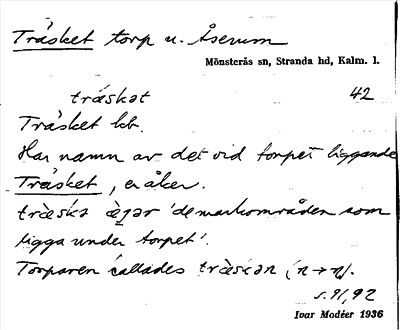 Träsket torp u. Åserum
Mönsterås sn, Stranda hd, Kalm. l.
träskət 42
Träsket kb.
Har namn av det vid torpet liggande
Träsket, en åker.
træskə ægər 'de markområden som
ligga under torpet'.
Torparen kallades træskən (n → n).
s. 91, 92
Ivar Modéer 1936